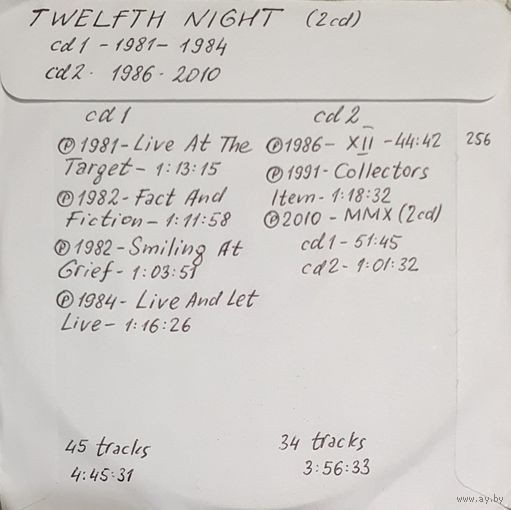 TWELFTH NIGHT (2cd)
cd1 - 1981 - 1984
cd2 · 1986 · 2010
cd1
℗1981 - Live At The
Target - 1:13:15
℗1982 - Fact And
Fiction - 1:11:58
℗1982 - Smiling At
Grief - 1:03:51
℗1984 - Live And Let
Live - 1:16:26
45 tracks
4:45:31
cd2
℗1986 - XII - 44:42
℗1991 - Collectors
Item - 1:18:32
℗2010 - MMX (2cd)
cd1 - 51:45
cd2 - 1:01:32
34 tracks
3:56:33
256
www.ay.by